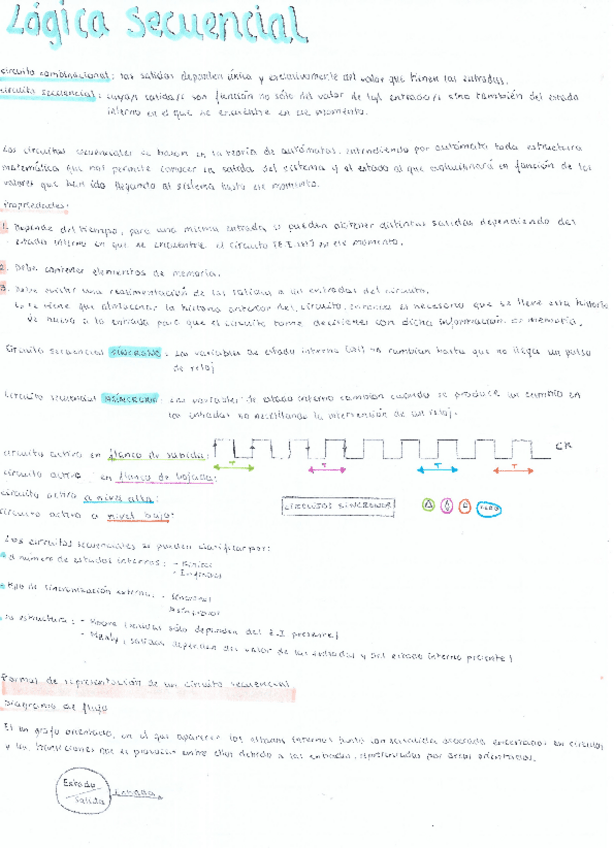 Lógica Secuencial
circuito combinacional: las salidas dependen única y exclusivamente del valor que tienen las entradas.
circuito secuencial: cuya/s salida/s son función no sólo del valor de la/s entrada/s sino también del estado
interno en el que se encuentre en ese momento.
Los circuitos secuenciales se basan en la teoría de autómatas, entendiendo por autómata toda estructura
matemática que nos permite conocer la salida del sistema y el estado al que evolucionará en función de los
valores que han ido llegando al sistema hasta ese momento.
Propiedades:
1. Depende del tiempo, para una misma entrada se pueden obtener distintas salidas dependiendo del
estado interno en que se encuentre el circuito (E.I.) en ese momento.
2. Debe contener elementos de memoria.
3. Debe existir una realimentación de las salidas a las entradas del circuito.
tiene que almacenar la historia anterior del circuito, es necesario que se lleve esta historia
de nuevo a la entrada para que el circuito tome decisiones con dicha información memoria.
Circuito secuencial SÍNCRONO: Las variables de estado interno no cambian hasta que no llega un pulso
de reloj
Circuito secuencial ASÍNCRONO: Las variables de estado interno cambian cuando se produce un cambio en
las entradas no necesitando la intervención de un reloj.
circuito activo en flanco de subida: CK
T T T T
circuito activo en flanco de bajada:
circuito activo a nivel alto:
circuito activo a nivel bajo:
CIRCUITOS SÍNCRONOS
Los circuitos secuenciales se pueden clasificar por:
número de estados internos: - Finitos
- Infinitos
tipo de sincronización externa: - síncronos
asíncronos
su estructura: - Moore (salidas sólo dependen del E.I presente)
- Mealy (salidas dependen del valor de las entradas y del estado interno presente)
Formas de representación de un circuito secuencial
Diagrama de flujo
Es un grafo orientado, en el que aparecen los estados internos junto con su salida asociada encerrados en círculos
y las transiciones que se provocan entre ellos debido a las entradas, representadas por arcos orientados.
Estado
Salida
entrada